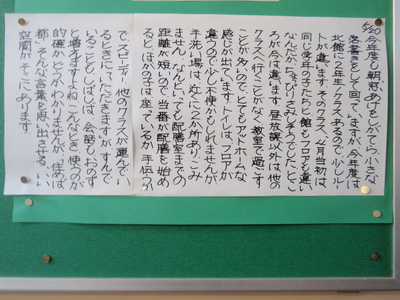 5/20 今年度も朝、忍ありをしながら、小さな
落書きをして回ってますが、今年度は
北館に2年生1クラスあるので、少しルー
トが違います。そのクラス、4月当初は、
同じ学年の子たちと館もフロアも違い、
なんだかちょっぴりさみしそうでした。とこ
ろが今は違います。昼放課以外は他の
クラスへ行くことがなく、教室で過ごす
ことが多いので、とてもアットホームな
感じが出ています。トイレは、フロアが
違うので少し不便かもしれませんが、
手洗い場は、近くに2か所あり、こみ
ません。なんといっても配膳室までの
距離が短いので、当番が配膳を始め
ると、ほかの子は座っているか、手伝うか
で、スピーディー。他のクラスが運んでい
るときに、いただきますが、すんで
いることもしばしば。会話もおのず
と増えますよね。こんなとき、使うのが
的確かどうかわかりませんが、「住めば
都」そんな言葉を思い出させる、いい
空間がそこにあります。